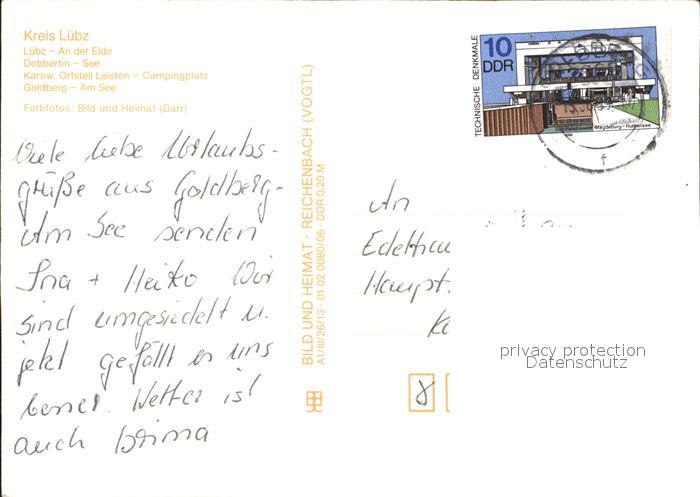 Kreis Lübz
Lübz – An der Elde
Dobbertin – See
Karow, Ortsteil Leisten – Campingplatz
Goldberg – Am See
Farbfotos: Bild und Heimat (Darr)
Viele liebe Urlaubs-
grüße aus Goldberg-
Am See senden
Ina + Heiko Wir
sind umgesiedelt u.
jetzt gefällt es uns
besser. Wetter ist
auch prima
BILD UND HEIMAT · REICHENBACH (VOGTL)
A1/III/26/13 · 01 02 0080/06 · DDR 0,20 M
TECHNISCHE DENKMALE
10
DDR
Magdeburg - Rothensee
f
An
Haupt
8
privacy protection
Datenschutz